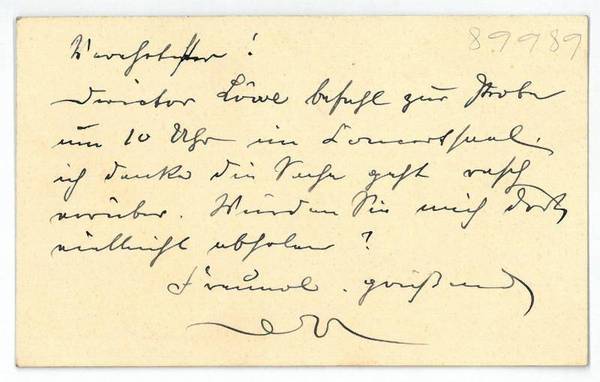 Verehrtester !
89989
Director Löwe befahl zur Probe
um 10 Uhr im Concertsaal.
ich denke die Sache geht rasch
vorüber. Würden Sie mich dort
vielleicht abholen ?
Freundl. grüßend